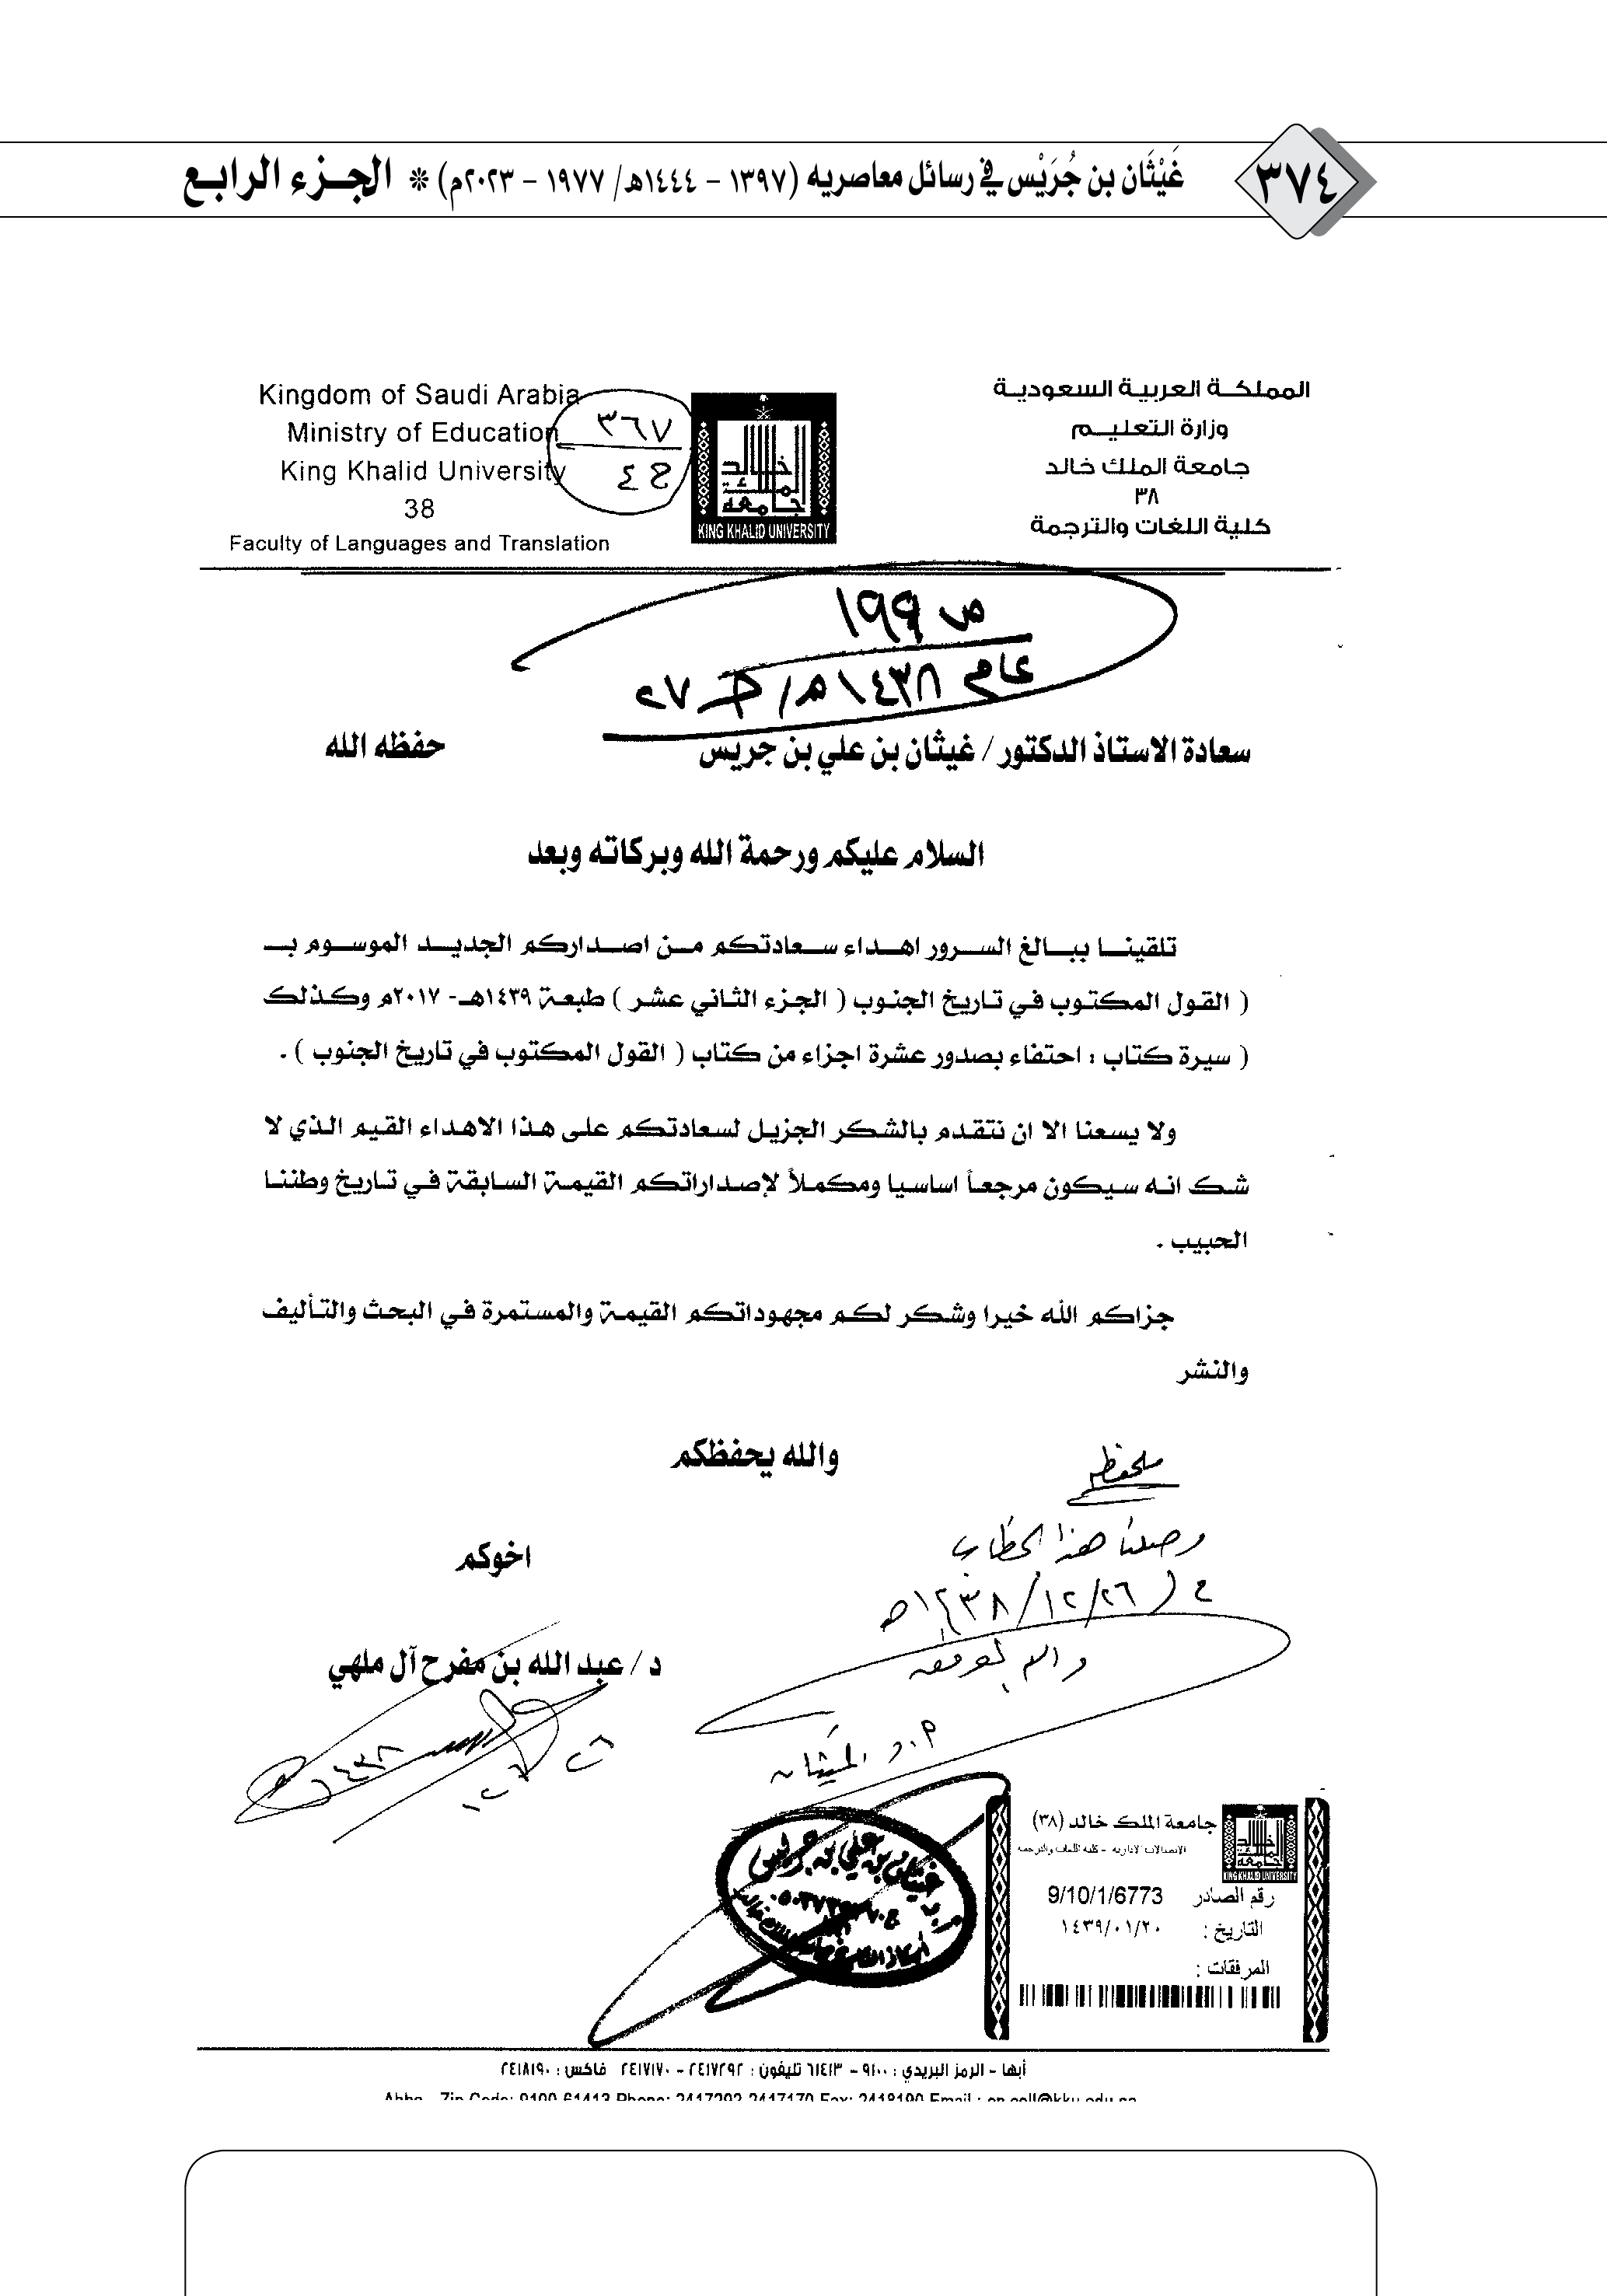 ٣٧٤
غَيْثَان بن جُرَيْس في رسائل معاصريه (١٣٩٧ – ١٤٤٤هـ/ ١٩٧٧ – ٢٠٢٣م) * الجزء الرابع
المملكة العربية السعودية
وزارة التعليم
جامعة الملك خالد
٣٨
كلية اللغات والترجمة
جامعة الملك خالد
KING KHALID UNIVERSITY
Kingdom of Saudi Arabia
Ministry of Education
King Khalid University
38
Faculty of Languages and Translation
٣٦٧
ح ٤
ص ١٩٩
عام ١٤٣٨هـ/ ج ٢٧
سعادة الاستاذ الدكتور / غيثان بن علي بن جريس حفظه الله
السلام عليكم ورحمة الله وبركاته وبعد
تلقينا ببالغ السرور اهداء سعادتكم من اصداركم الجديد الموسوم بـ
( القول المكتوب في تاريخ الجنوب ( الجزء الثاني عشر ) طبعة ١٤٣٩هـ- ٢٠١٧م وكذلك
( سيرة كتاب : احتفاء بصدور عشرة اجزاء من كتاب ( القول المكتوب في تاريخ الجنوب ) .
ولا يسعنا الا ان نتقدم بالشكر الجزيل لسعادتكم على هذا الاهداء القيم الذي لا
شك انه سيكون مرجعاً اساسيا ومكملاً لإصداراتكم القيمة السابقة في تاريخ وطننا
الحبيب .
جزاكم الله خيرا وشكر لكم مجهوداتكم القيمة والمستمرة في البحث والتأليف
والنشر
والله يحفظكم
اخوكم
د / عبد الله بن مفرح آل ملهي
ملحوظة
وصلنا هذا الخطاب
في ٢٦/١٢/١٤٣٨هـ
والله الموفق
غيثان بن علي بن جريس
جامعة الملك خالد (٣٨)
الاتصالات الادارية - كلية اللغات والترجمة
KING KHALID UNIVERSITY
رقم الصادر 9/10/1/6773
التاريخ : ١٤٣٩/٠١/٢٠
المرفقات :
أبها – الرمز البريدي : ٩١٠٠ – ٦١٤١٣ تليفون : ٢٤١٧٢٩٢ – ٢٤١٧١٧٠ فاكس : ٢٤١٨١٩٠
Abha - Zip Code: 9100-61413 Phone: 2417292-2417170 Fax: 2418190 Email : en.coll@kku.edu.sa